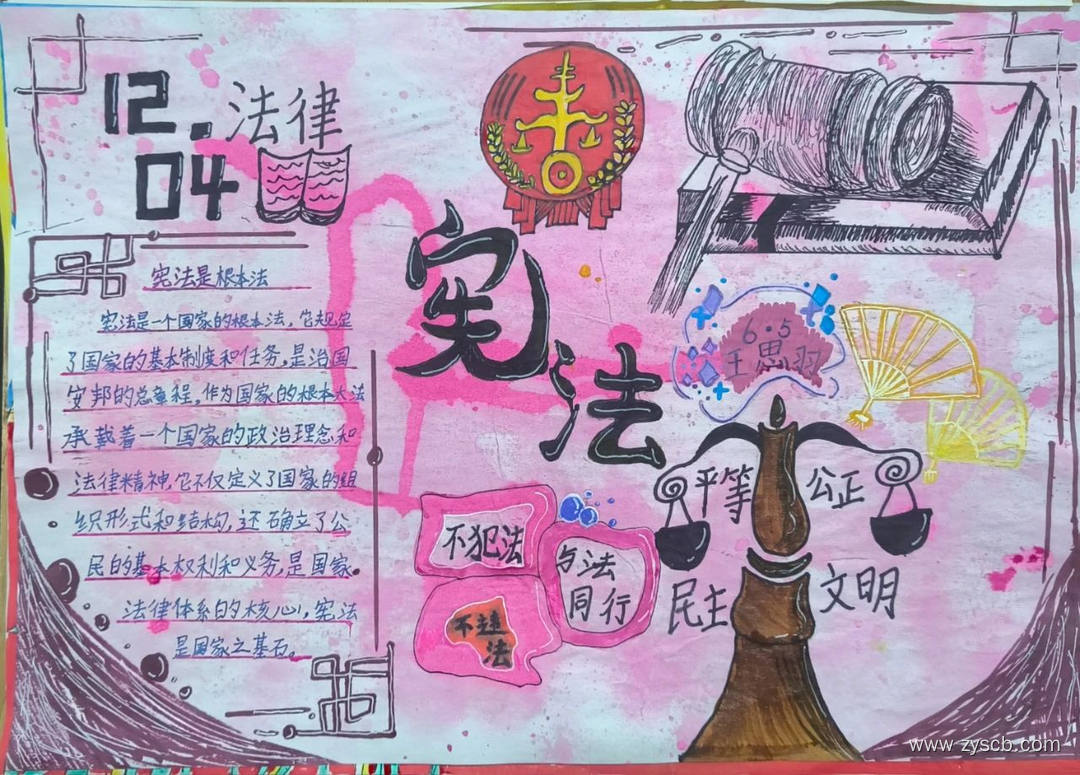 12.
04
法律
宪法是根本法
宪法是一个国家的根本法，它规定
了国家的基本制度和任务，是治国
安邦的总章程，作为国家的根本大法
承载着一个国家的政治理念和
法律精神，它不仅定义了国家的组
织形式和结构，还确立了公
民的基本权利和义务，是国家
法律体系的核心，宪法
是国家之基石。
宪法
6.5
王思羽
不犯法
与法
同行
不违
法
平等
公正
民主
文明
www.zyscb.com